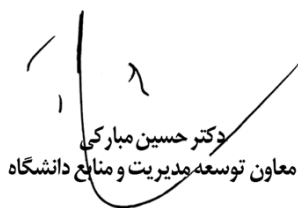 دکتر حسین مبارکی
معاون توسعه مدیریت و منابع دانشگاه